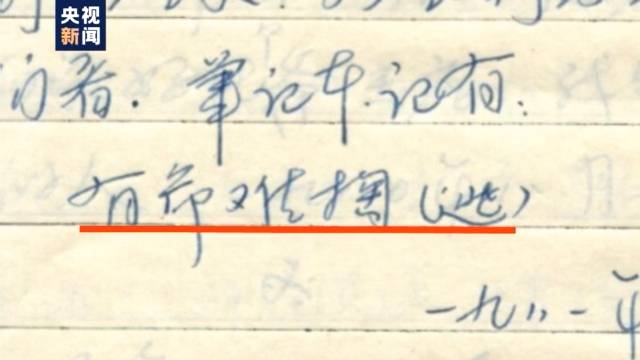 央视
新闻
着. 笔记本记有:
有命难掏(逃)
一九八一年